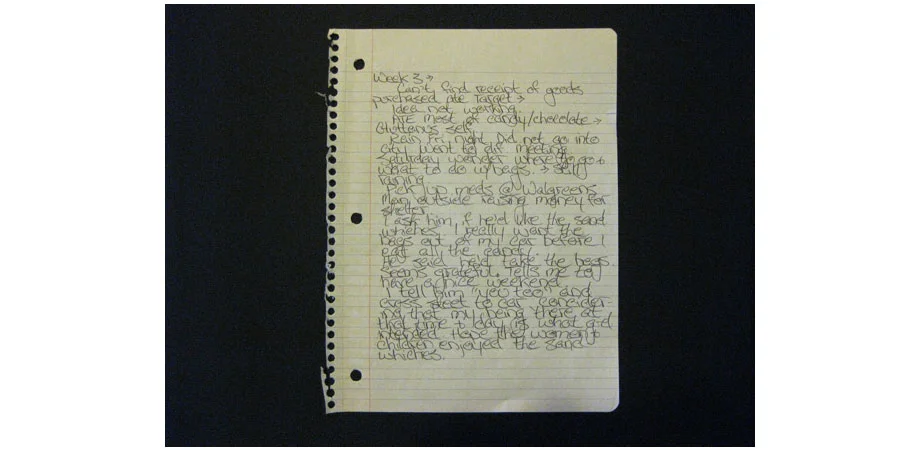 Week 3 →
Can't find receipt of goods
purchased ate Target →
Idea not working.
ATE most of candy/chocolate →
Gluttonus self.
Rain Fri. night. Did not go into
city. Went to dif. meeting.
Saturday wonder where to go +
what to do w/bags. → Still
raining
Pick up meds @ Walgreens
Man outside raising money for
shelter
I ask him, if he'd like the sand
whiches. I really want the
bags out of my car before I
eat all the candy!
He said he'd take the bags.
Seems grateful. Tells me to
have a nice weekend
I tell him "you too" and
cross street to car. Consider-
ing that my being there at
that time + day is what g-d
intended. Hope the women +
children enjoyed the sand
whiches.